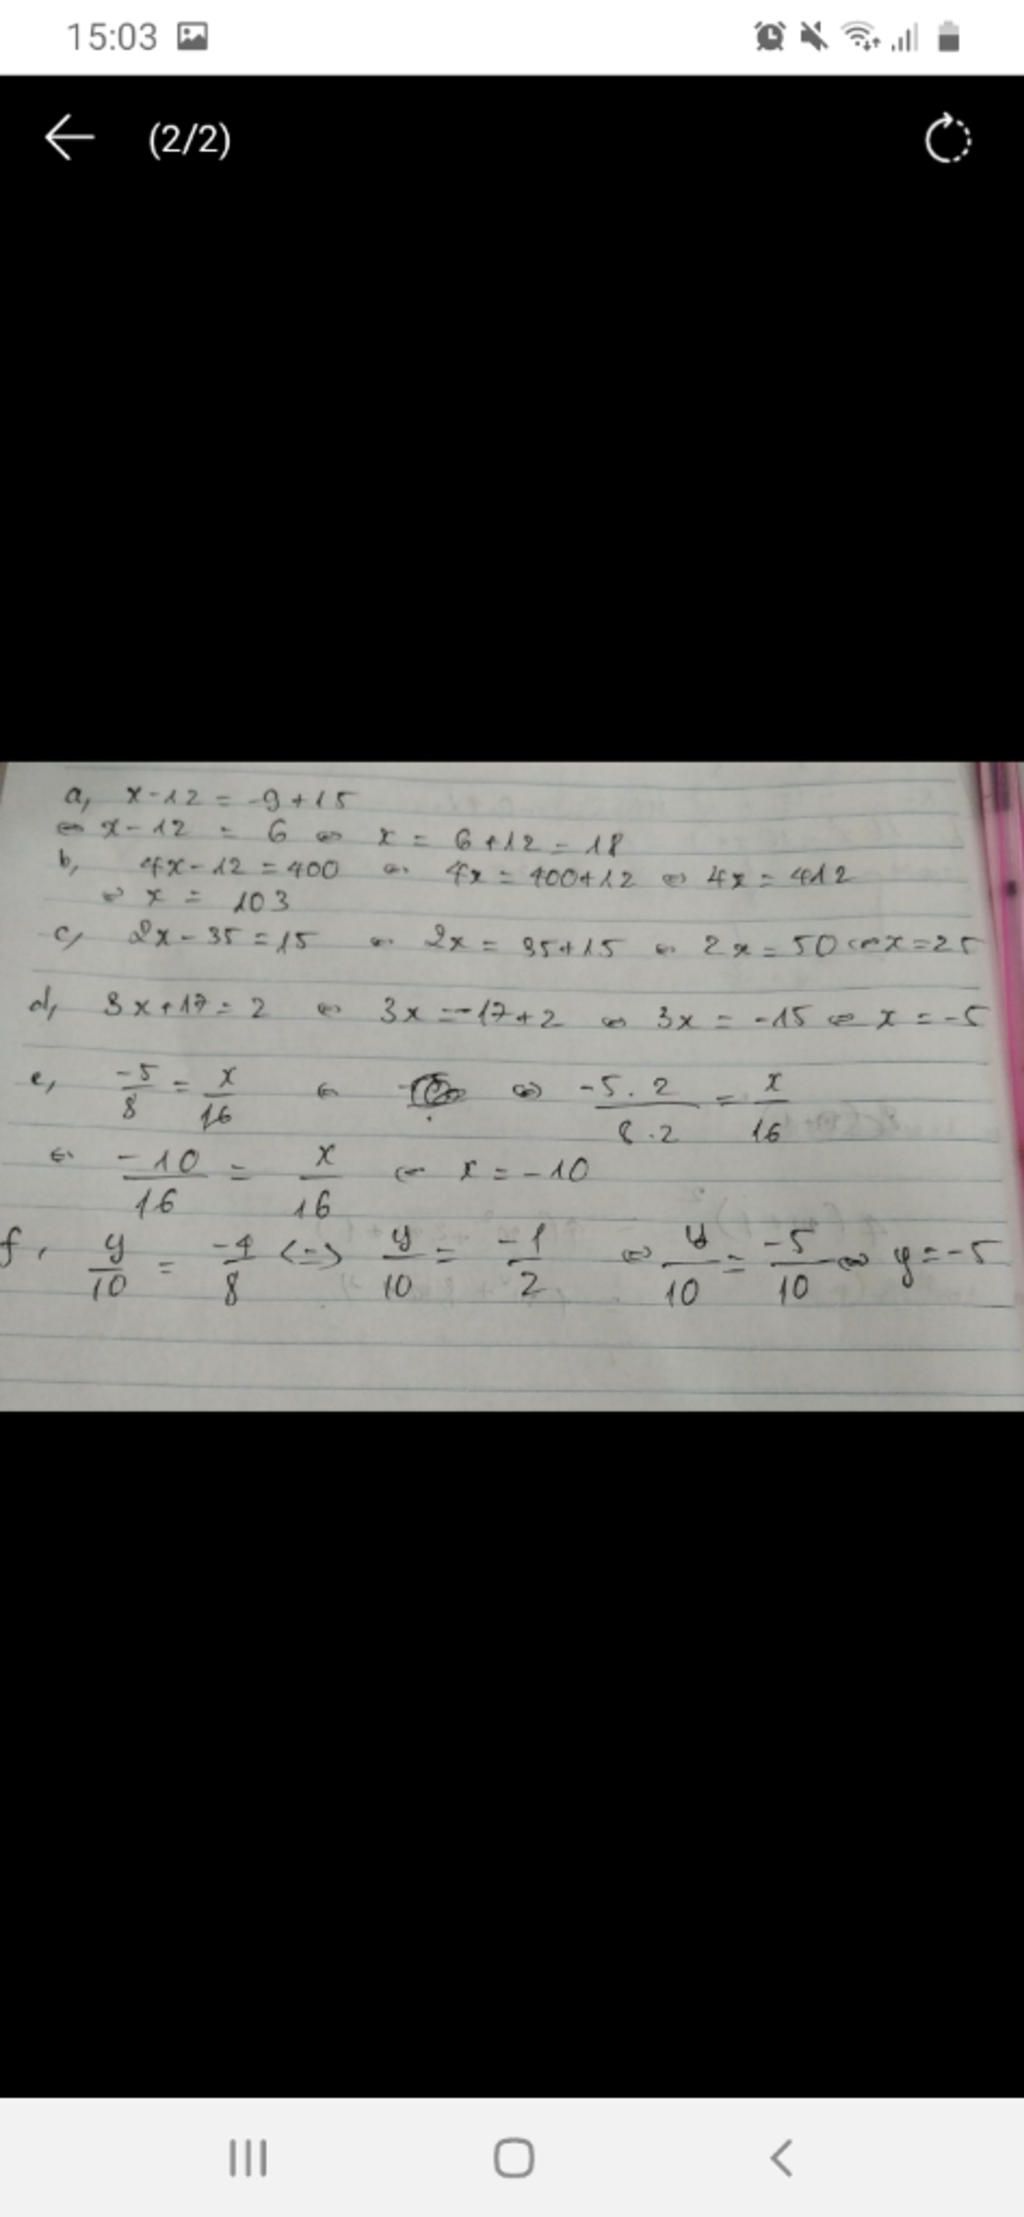 15:03
(2/2)
a, x-12 = -9+15
⇔ x-12 = 6 ⇔ x = 6+12 = 18
b, 4x-12 = 400 ⇔ 4x = 400+12 ⇔ 4x = 412
⇔ x = 103
c, 2x-35 = 15 ⇔ 2x = 35+15 ⇔ 2x = 50 ⇔ x = 25
d, 3x+17 = 2 ⇔ 3x = -17+2 ⇔ 3x = -15 ⇔ x = -5
e, -5/8 = x/16 ⇔ ⇔ -5.2/8.2 = x/16
⇔ -10/16 = x/16 ⇔ x = -10
f, y/10 = -4/8 <=> y/10 = -1/2 ⇔ y/10 = -5/10 ⇔ y = -5